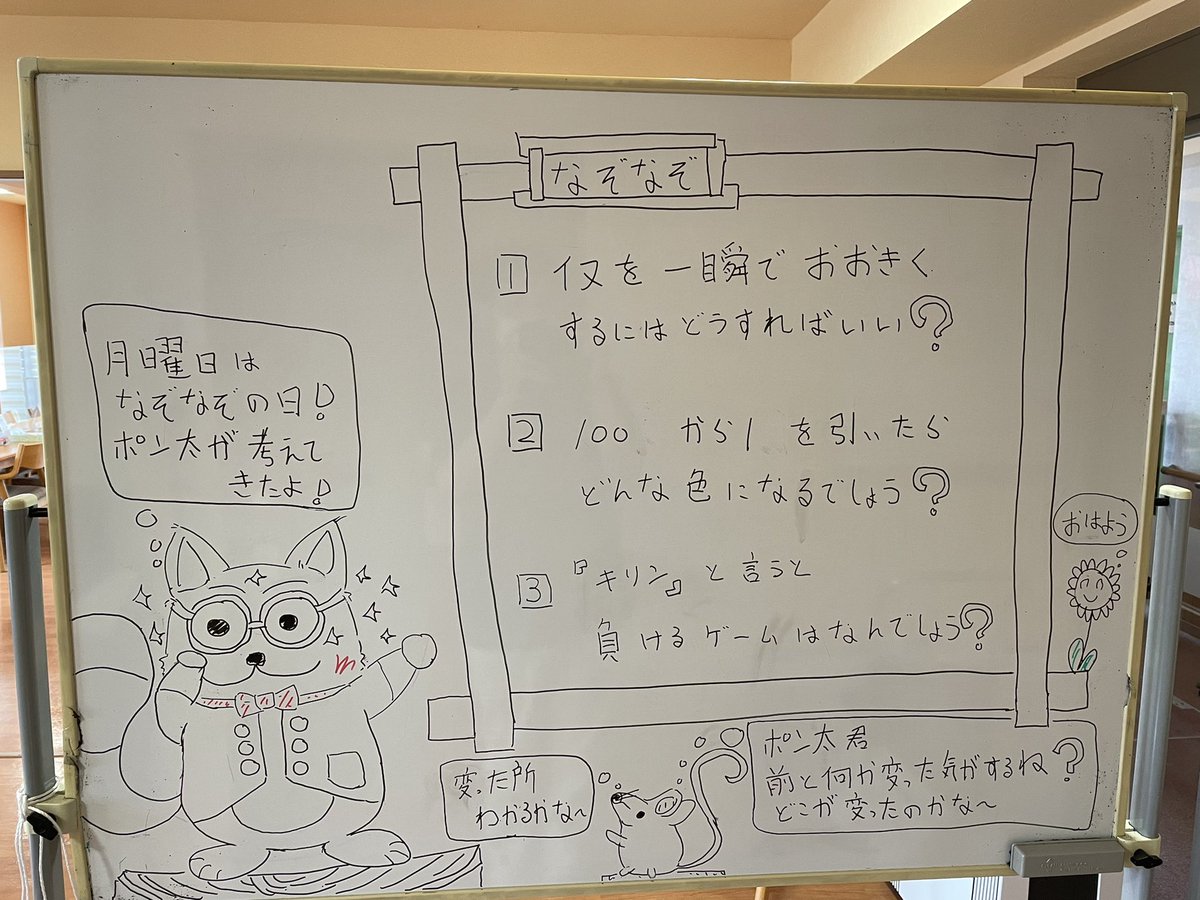 なぞなぞ
1 イヌを一瞬でおおきく
するにはどうすればいい?
2 100 から1 を引いたら
どんな色になるでしょう?
3 『キリン』と言うと
負けるゲームはなんでしょう?
月曜日は
なぞなぞの日!
ポン太が考えて
きたよ!
おはよう
変った所
わかるかな〜
ポン太君
前と何か変った気がするね?
どこが変ったのかな〜